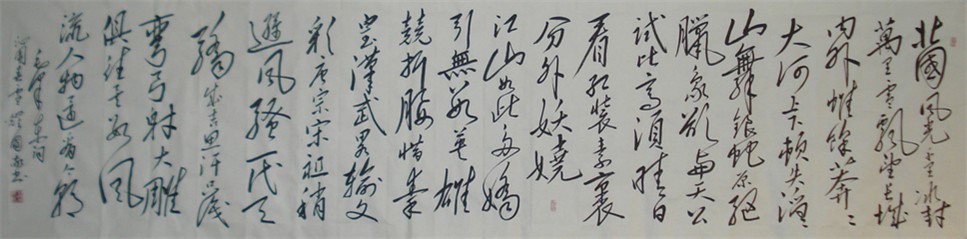 北國風光千里冰封
萬里雪飄望長城
内外惟餘莽々
大河上下頓失滔
山舞銀蛇原馳
臘象欲與天公
試比高須晴日
看紅裝素裹
分外妖嬈
江山如此多嬌
引無數英雄
競折腰惜秦
皇漢武略輸文
彩唐宗宋祖稍
遜風騷一代天
驕成吉思汗只識
彎弓射大雕
俱往矣數風
流人物還看今朝
毛澤東詞
沁園春雪